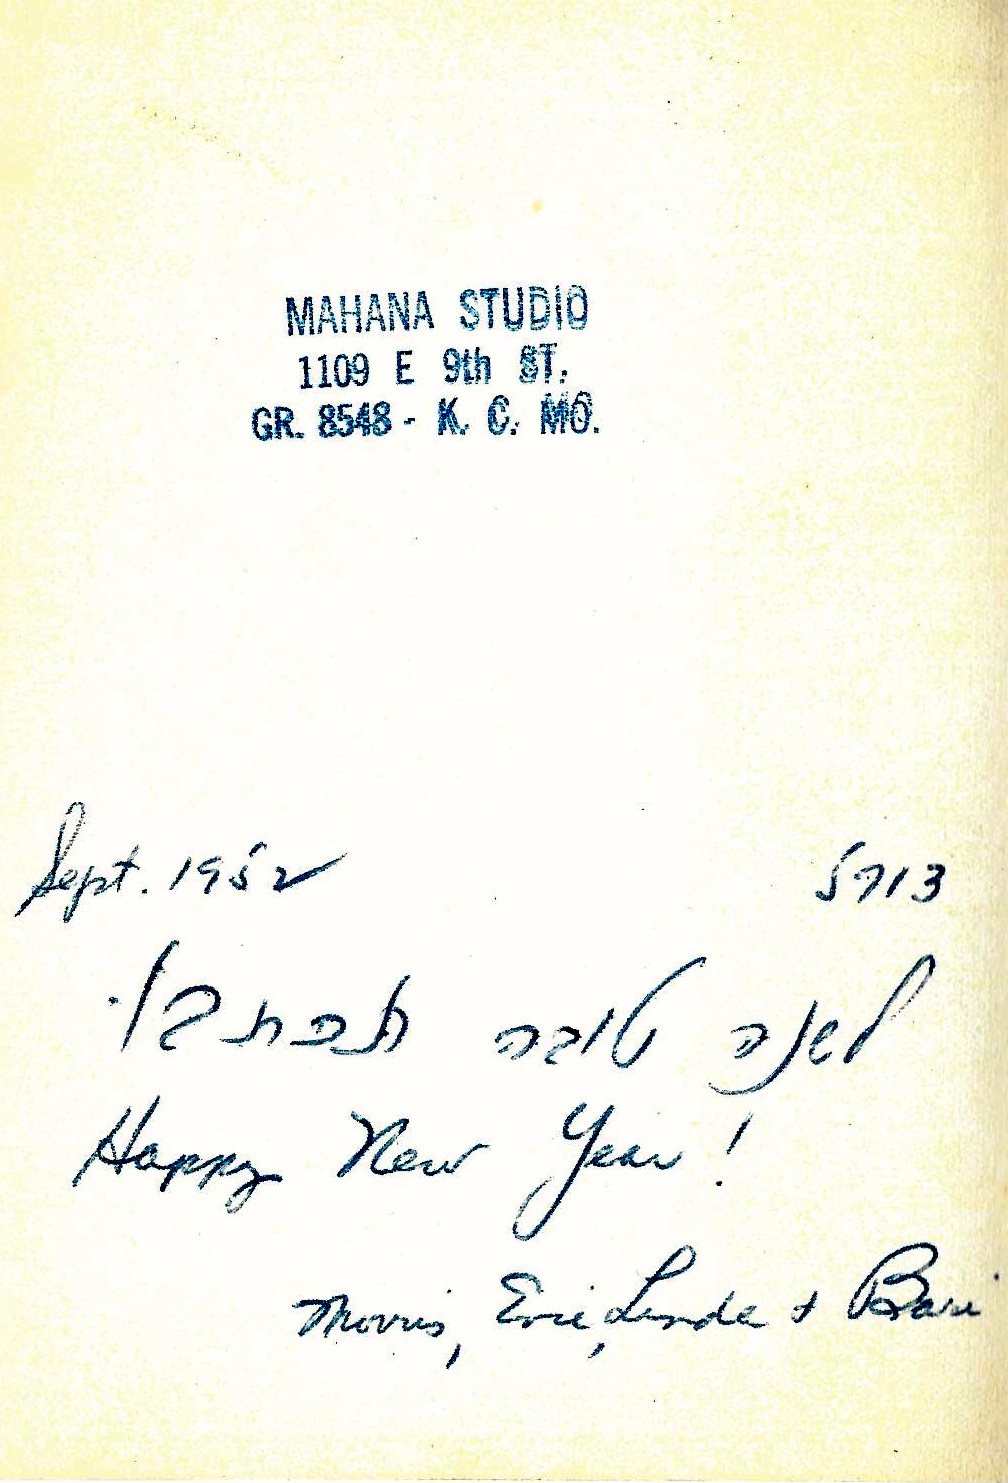 MAHANA STUDIO
1109 E 9th ST.
GR. 8548 - K. C. MO.
Sept. 1952 5713
לשנה טובה תכתבו.
Happy New Year!
Morris, Evie, Linda + Bari